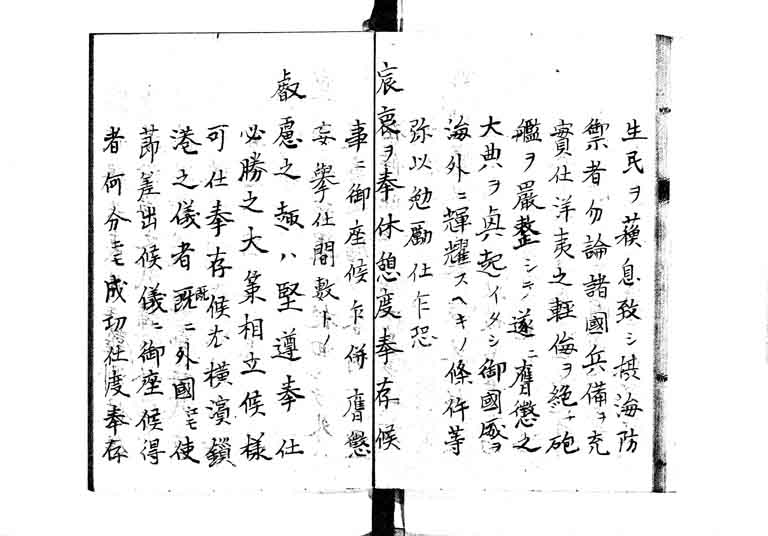 生民ヲ蘓息致シ摂海防
禦者勿論諸國兵備ヲ充
實仕洋夷之軽侮ヲ絶チ砲
艦ヲ嚴整シテ遂ニ膺懲之
大典ヲ興起イタシ御國威ヲ
海外ニ輝耀スヘキノ條件等
弥以勉勵仕乍恐
宸衷ヲ奉休憩度奉存候
事ニ御座候乍併膺懲
妄擧仕間敷トノ
叡慮之趣ハ堅遵奉仕
必勝之大策相立候様
可仕奉存候尤横濱鎖
港之儀者既ニ外國ヱモ使
節差出候儀ニ御座候得
者何分ニモ成功仕度奉存